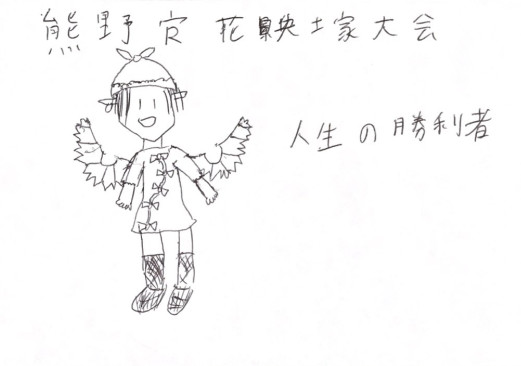 熊野 花映塚大会
人生の勝利者